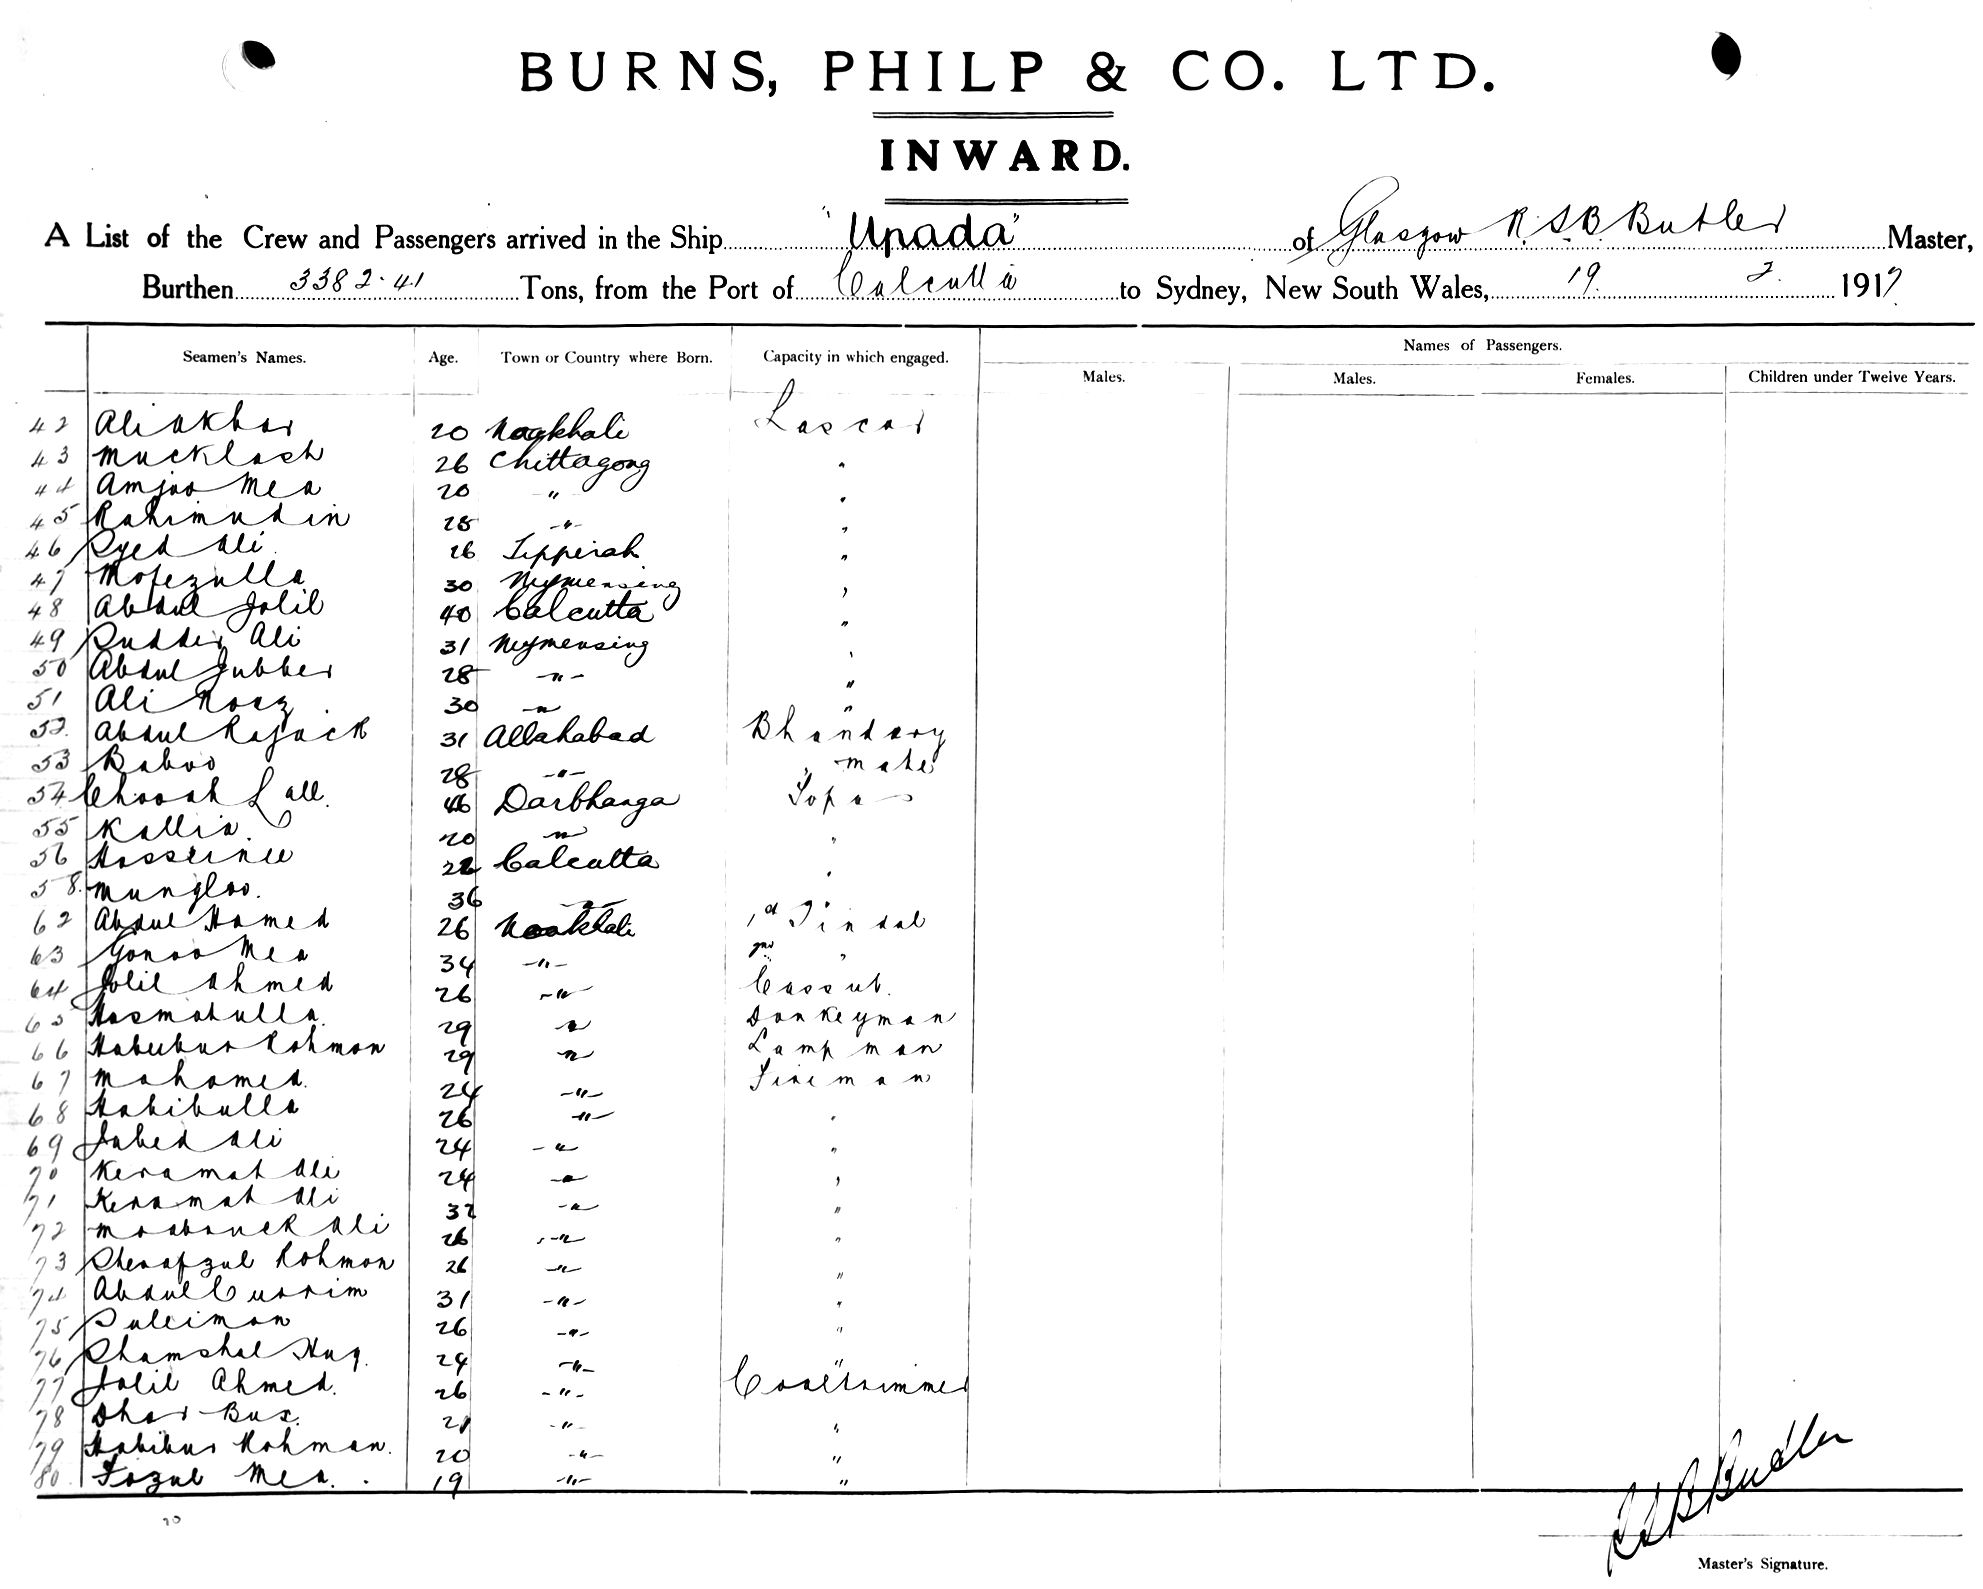 BURNS, PHILP & CO. LTD.
INWARD.
A List of the Crew and Passengers arrived in the Ship "Upada" of Glasgow R. S. B. Butler Master,
Burthen 3382.41 Tons, from the Port of Calcutta to Sydney, New South Wales, 19 2. 1917
Seamen's Names. Age. Town or Country where Born. Capacity in which engaged. Names of Passengers.
Males. Males. Females. Children under Twelve Years.
42 Ali Akbar 20 Noakhali Lascar
43 Mucklach 26 Chittagong "
44 Amjoo Mea 20 " "
45 Rahimudin 25 " "
46 Syed Ali 26 Tipperah "
47 Mofezulla 30 Mymensing "
48 Abdul Jolil 40 Calcutta "
49 Sudder Ali 31 Mymensing "
50 Abdul Jubber 28 " "
51 Ali Noaz 30 " "
52. Abdul Rajack 31 Allahabad Bhandary
53 Baboo 28 " " mate
54 Chooah Lall. 46 Darbhanga Topas
55 Kallia. 20 " "
56 Hosseinee 22 Calcutta "
58. Mungloo. 36 "
62 Abdul Hamed 26 Noakhali 1st Tindal
63 Gonoo Mea 34 " 2nd "
64 Jolil Ahmed 26 " Cassub.
65 Hasmatulla. 29 " Donkeyman
66 Habeebur Rohman 29 " Lampman
67 Mahomed. 24 " Fireman
68 Habibulla 26 " "
69 Jabed Ali 24 " "
70 Keramat Ali 24 " "
71 Keramat Ali 32 " "
72 Moobaruck Ali 26 " "
73 Sherafzul Rohman 26 " "
74 Abdul Currim 31 " "
75 Suleiman 26 " "
76 Shamshal Huq. 29 " "
77 Jolil Ahmed. 26 " Coaltrimmer
78 Dhar Bux. 21 " "
79 Habibur Rohman. 20 " "
80 Fozul Mea. 19 " "
R S B Butler
Master's Signature.